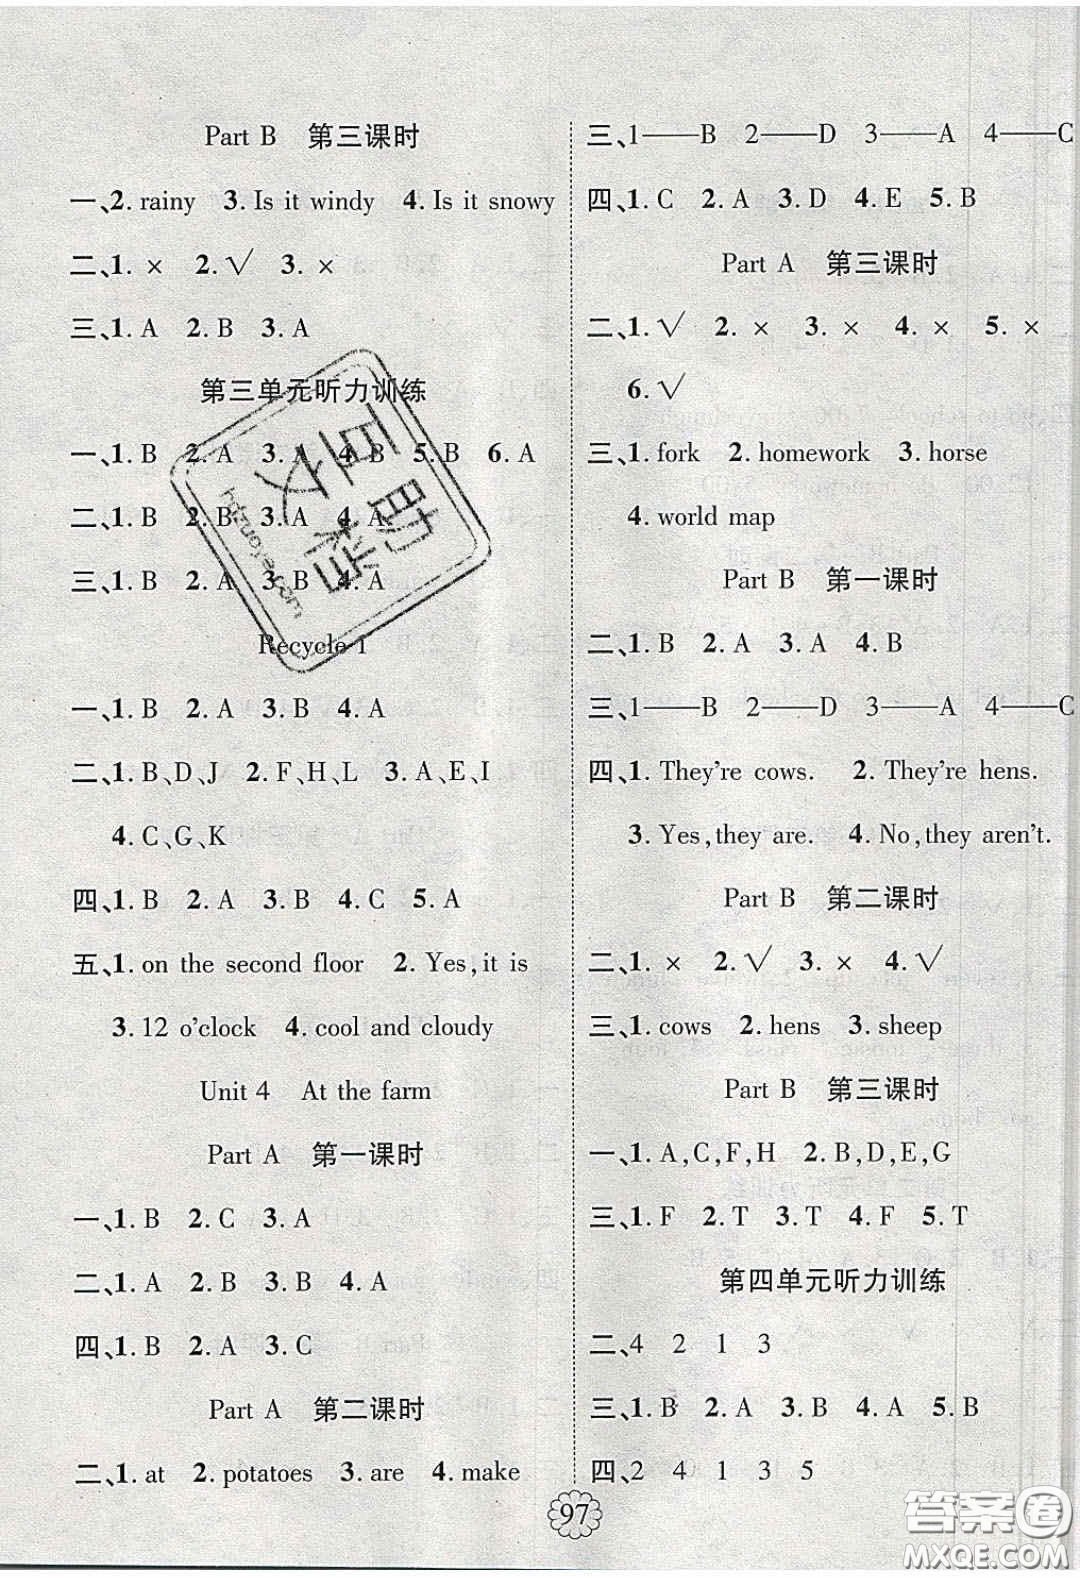 Part B 第三课时
一、2. rainy 3. Is it windy 4. Is it snowy
二、1. × 2. √ 3. ×
三、1. A 2. B 3. A
第三单元听力训练
一、1. B 2. A 3. A 4. B 5. B 6. A
二、1. B 2. B 3. A 4. A
三、1. B 2. A 3. B 4. A
Recycle 1
一、1. B 2. A 3. B 4. A
二、1. B、D、J 2. F、H、L 3. A、E、I
4. C、G、K
四、1. B 2. A 3. B 4. C 5. A
五、1. on the second floor 2. Yes, it is
3. 12 o'clock 4. cool and cloudy
Unit 4 At the farm
Part A 第一课时
一、1. B 2. C 3. A
二、1. A 2. B 3. B 4. A
四、1. B 2. A 3. C
Part A 第二课时
二、1. at 2. potatoes 3. are 4. make
三、1——B 2——D 3——A 4——C
四、1. C 2. A 3. D 4. E 5. B
Part A 第三课时
二、1. √ 2. × 3. × 4. × 5. ×
6. √
三、1. fork 2. homework 3. horse
4. world map
Part B 第一课时
二、1. B 2. A 3. A 4. B
三、1——B 2——D 3——A 4——C
四、1. They're cows. 2. They're hens.
3. Yes, they are. 4. No, they aren't.
Part B 第二课时
二、1. × 2. √ 3. × 4. √
三、1. cows 2. hens 3. sheep
Part B 第三课时
一、1. A,C,F,H 2. B,D,E,G
三、1. F 2. T 3. T 4. F 5. T
第四单元听力训练
二、4 2 1 3
三、1. B 2. A 3. B 4. A 5. B
四、2 4 1 3 5
97
答案圈
MXQE.COM